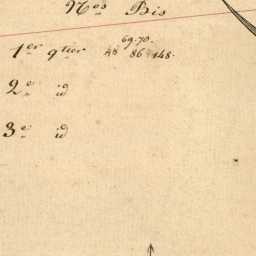 Nos Bis
69.70.
1er qtier 48 86 148.
2e id
3e id